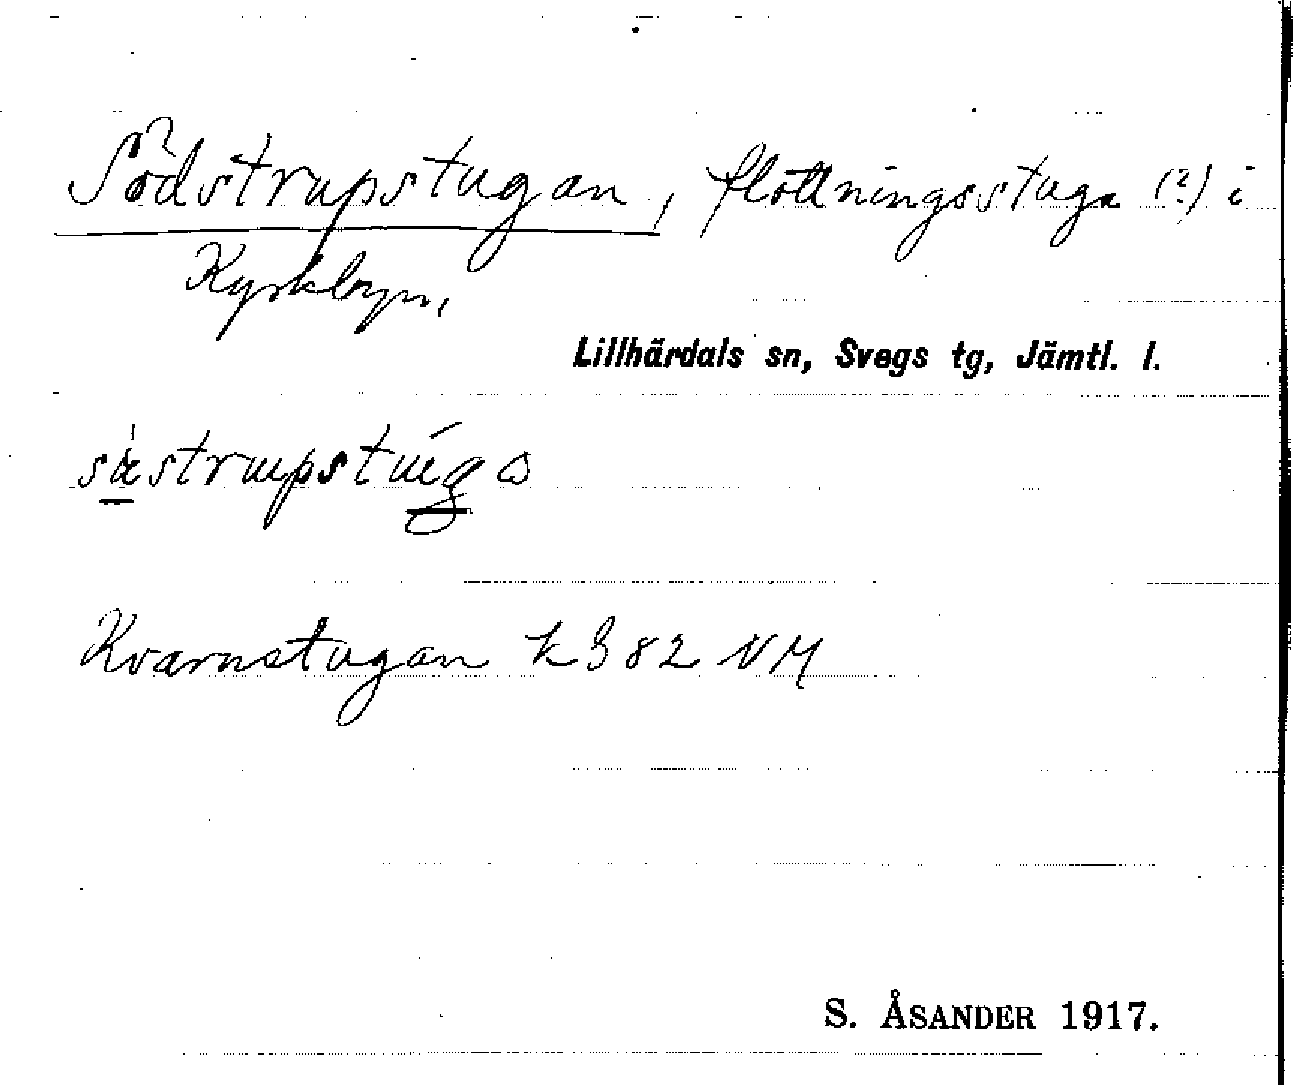 Södstrupstugan, flottningsstuga (?) i
Kyrkbyn,
Lillhärdals sn, Svegs tg, Jämtl. l.
Kvarnstugan k 3 82 NM
S. ÅSANDER 1917.